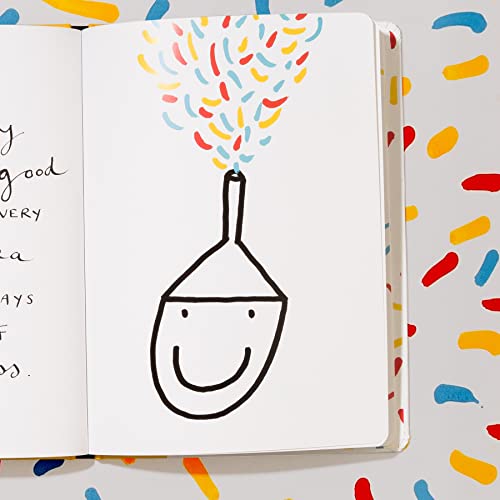 y
good
VERY
a
AYS
ss.